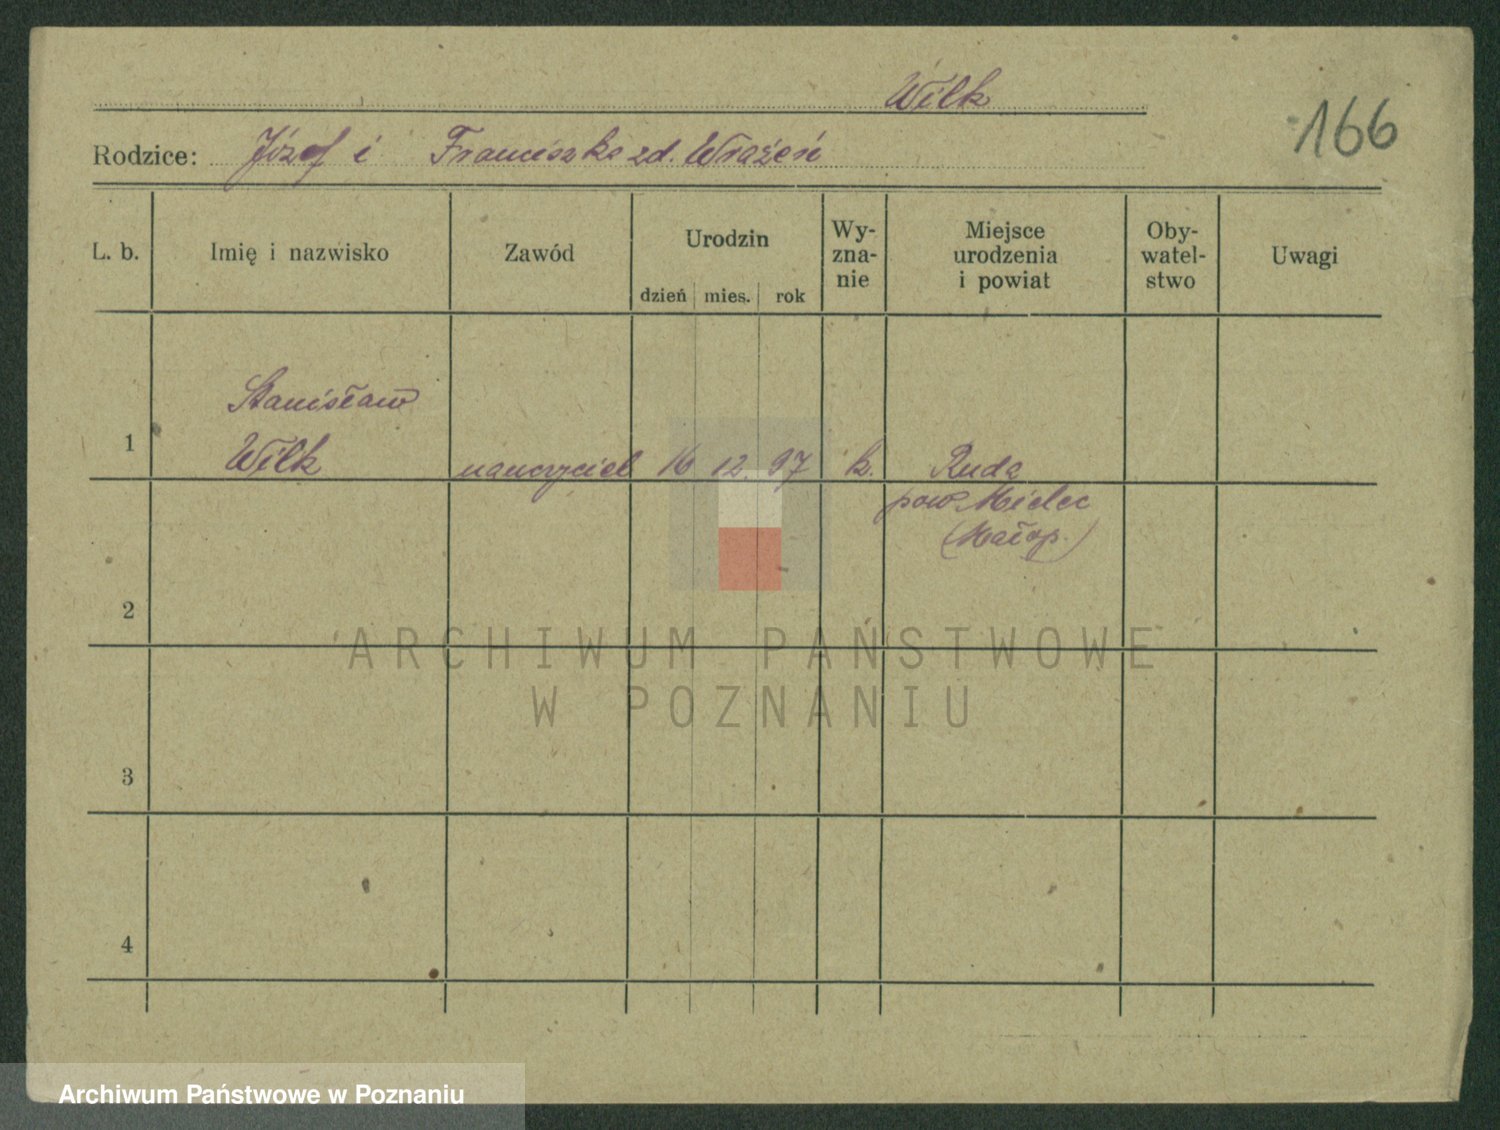 Wilk
166
Rodzice: Józef i Franciszka zd. Wrażeń
L. b. Imię i nazwisko Zawód Urodzin dzień mies. rok Wy-zna-nie Miejsce urodzenia i powiat Oby-watel-stwo Uwagi
Stanisław
1 Wilk nauczyciel 16 12. 97 k. Ruda
pow. Mielec
(Małop.)
2
ARCHIWUM PAŃSTWOWE
W POZNANIU
3
4
Archiwum Państwowe w Poznaniu